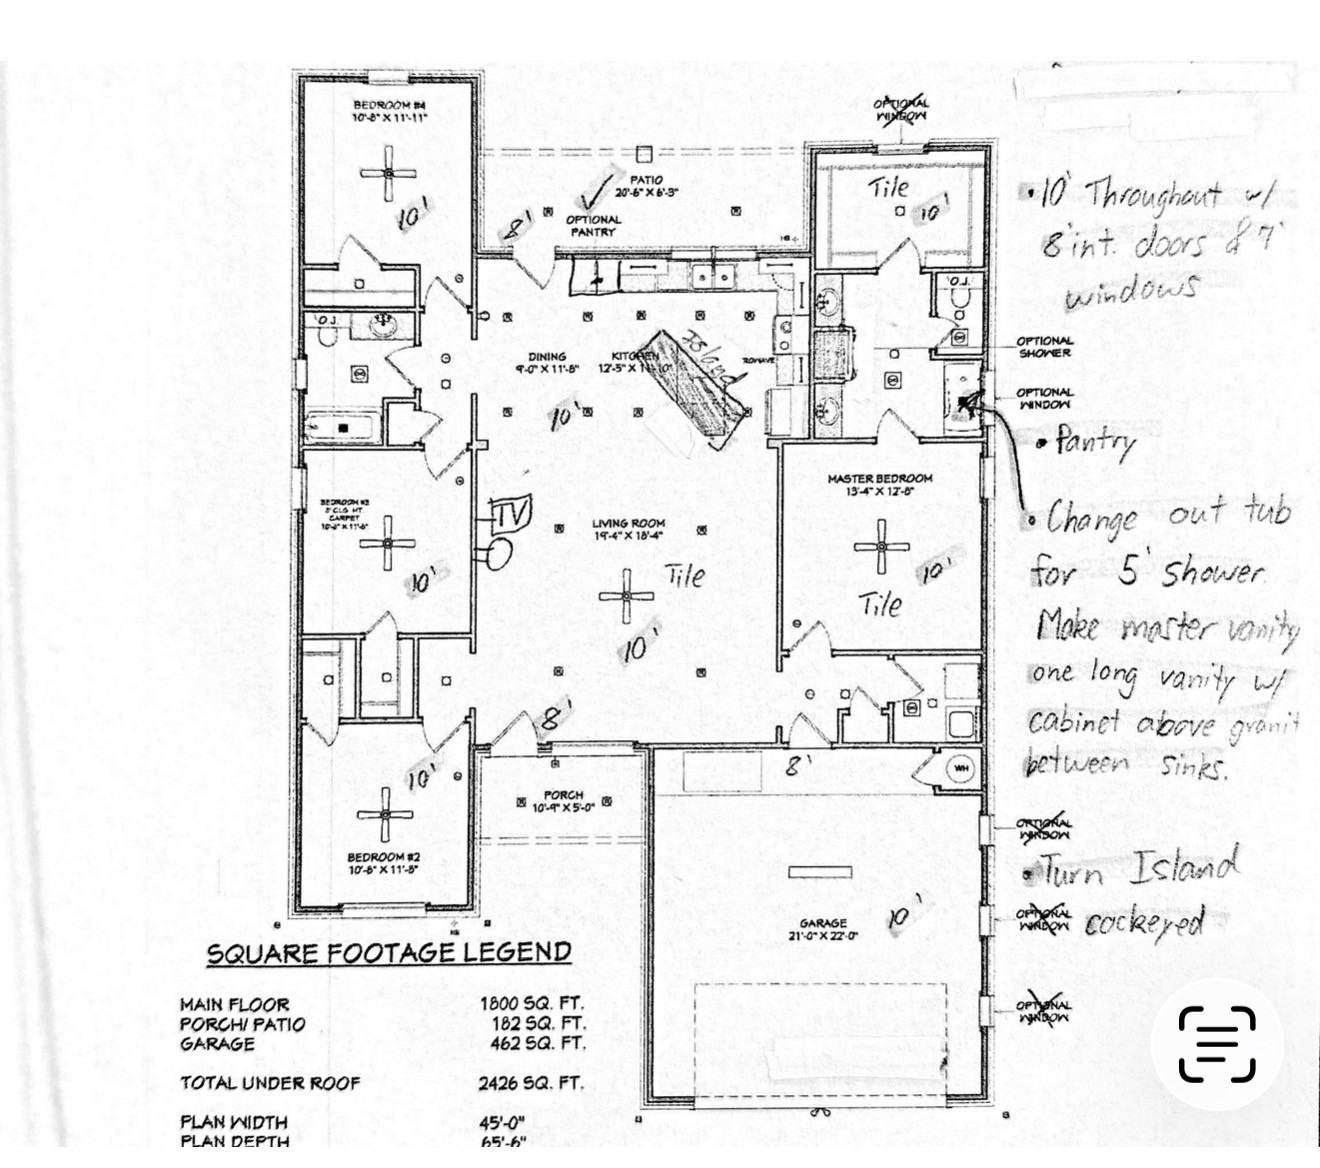 BEDROOM #4
10'-8" X 11'-11"
OPTIONAL
WINDOW
PATIO
20'-6" X 6'-3"
OPTIONAL
PANTRY
8'
10'
Tile
10'
• 10' Throughout w/
8' int. doors & 7'
windows
O.J.
O.J.
OPTIONAL
SHOWER
DINING
9'-0" X 11'-8"
KITCHEN
12'-5" X
Island
10'
OPTIONAL
WINDOW
• Pantry
MASTER BEDROOM
13'-4" X 12'-8"
10'
Tile
BEDROOM #3
CARPET
10'
TV
LIVING ROOM
19'-4" X 18'-4"
Tile
10'
• Change out tub
for 5' shower.
Make master vanity
one long vanity w/
cabinet above granit
between sinks.
8'
10'
8'
WH
PORCH
10'-9" X 5'-0"
BEDROOM #2
10'-8" X 11'-8"
OPTIONAL
WINDOW
• Turn Island
cockeyed
OPTIONAL
WINDOW
OPTIONAL
WINDOW
GARAGE
21'-0" X 22'-0"
10'
SQUARE FOOTAGE LEGEND
MAIN FLOOR 1800 SQ. FT.
PORCH/ PATIO 182 SQ. FT.
GARAGE 462 SQ. FT.
TOTAL UNDER ROOF 2426 SQ. FT.
PLAN WIDTH 45'-0"
PLAN DEPTH 65'-6"